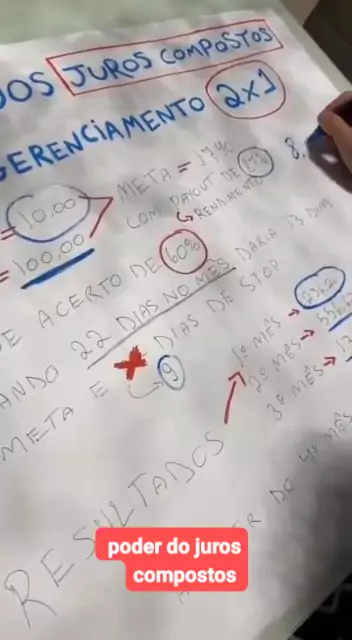 DOS JUROS COMPOSTOS
GERENCIAMENTO 2x1
= 10,00
META = 17,40
8,
= 100,00
COM PAYOUT DE 87%
RENDIMENTO
E ACERTO DE 60%
ANDO 22 DIAS NO MÊS DARIA 13 DIAS
META E X DIAS DE STOP
9
RESULTADOS
1º MÊS →
2º MÊS →
3º MÊS → 13
DO 4º MÊS
poder do juros
compostos